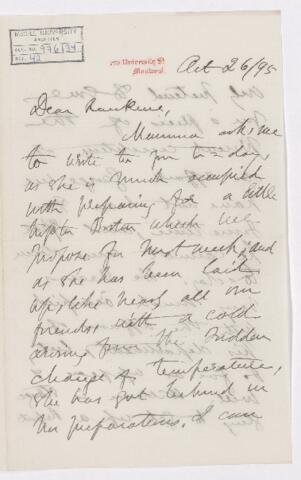 McGILL UNIVERSITY
ARCHIVES
ACC. NO. 976/34
REF. 42
University St
Montreal.
Oct 26/95
Dear Rankine,
Mamma asks me
to write to you to-day,
as she is much occupied
with preparing for a little
trip to Boston which we
propose for next week, and
as she has been laid
up, like nearly all our
friends, with a cold
arising from the sudden
change of temperature,
she has got behind in
her preparations. I can